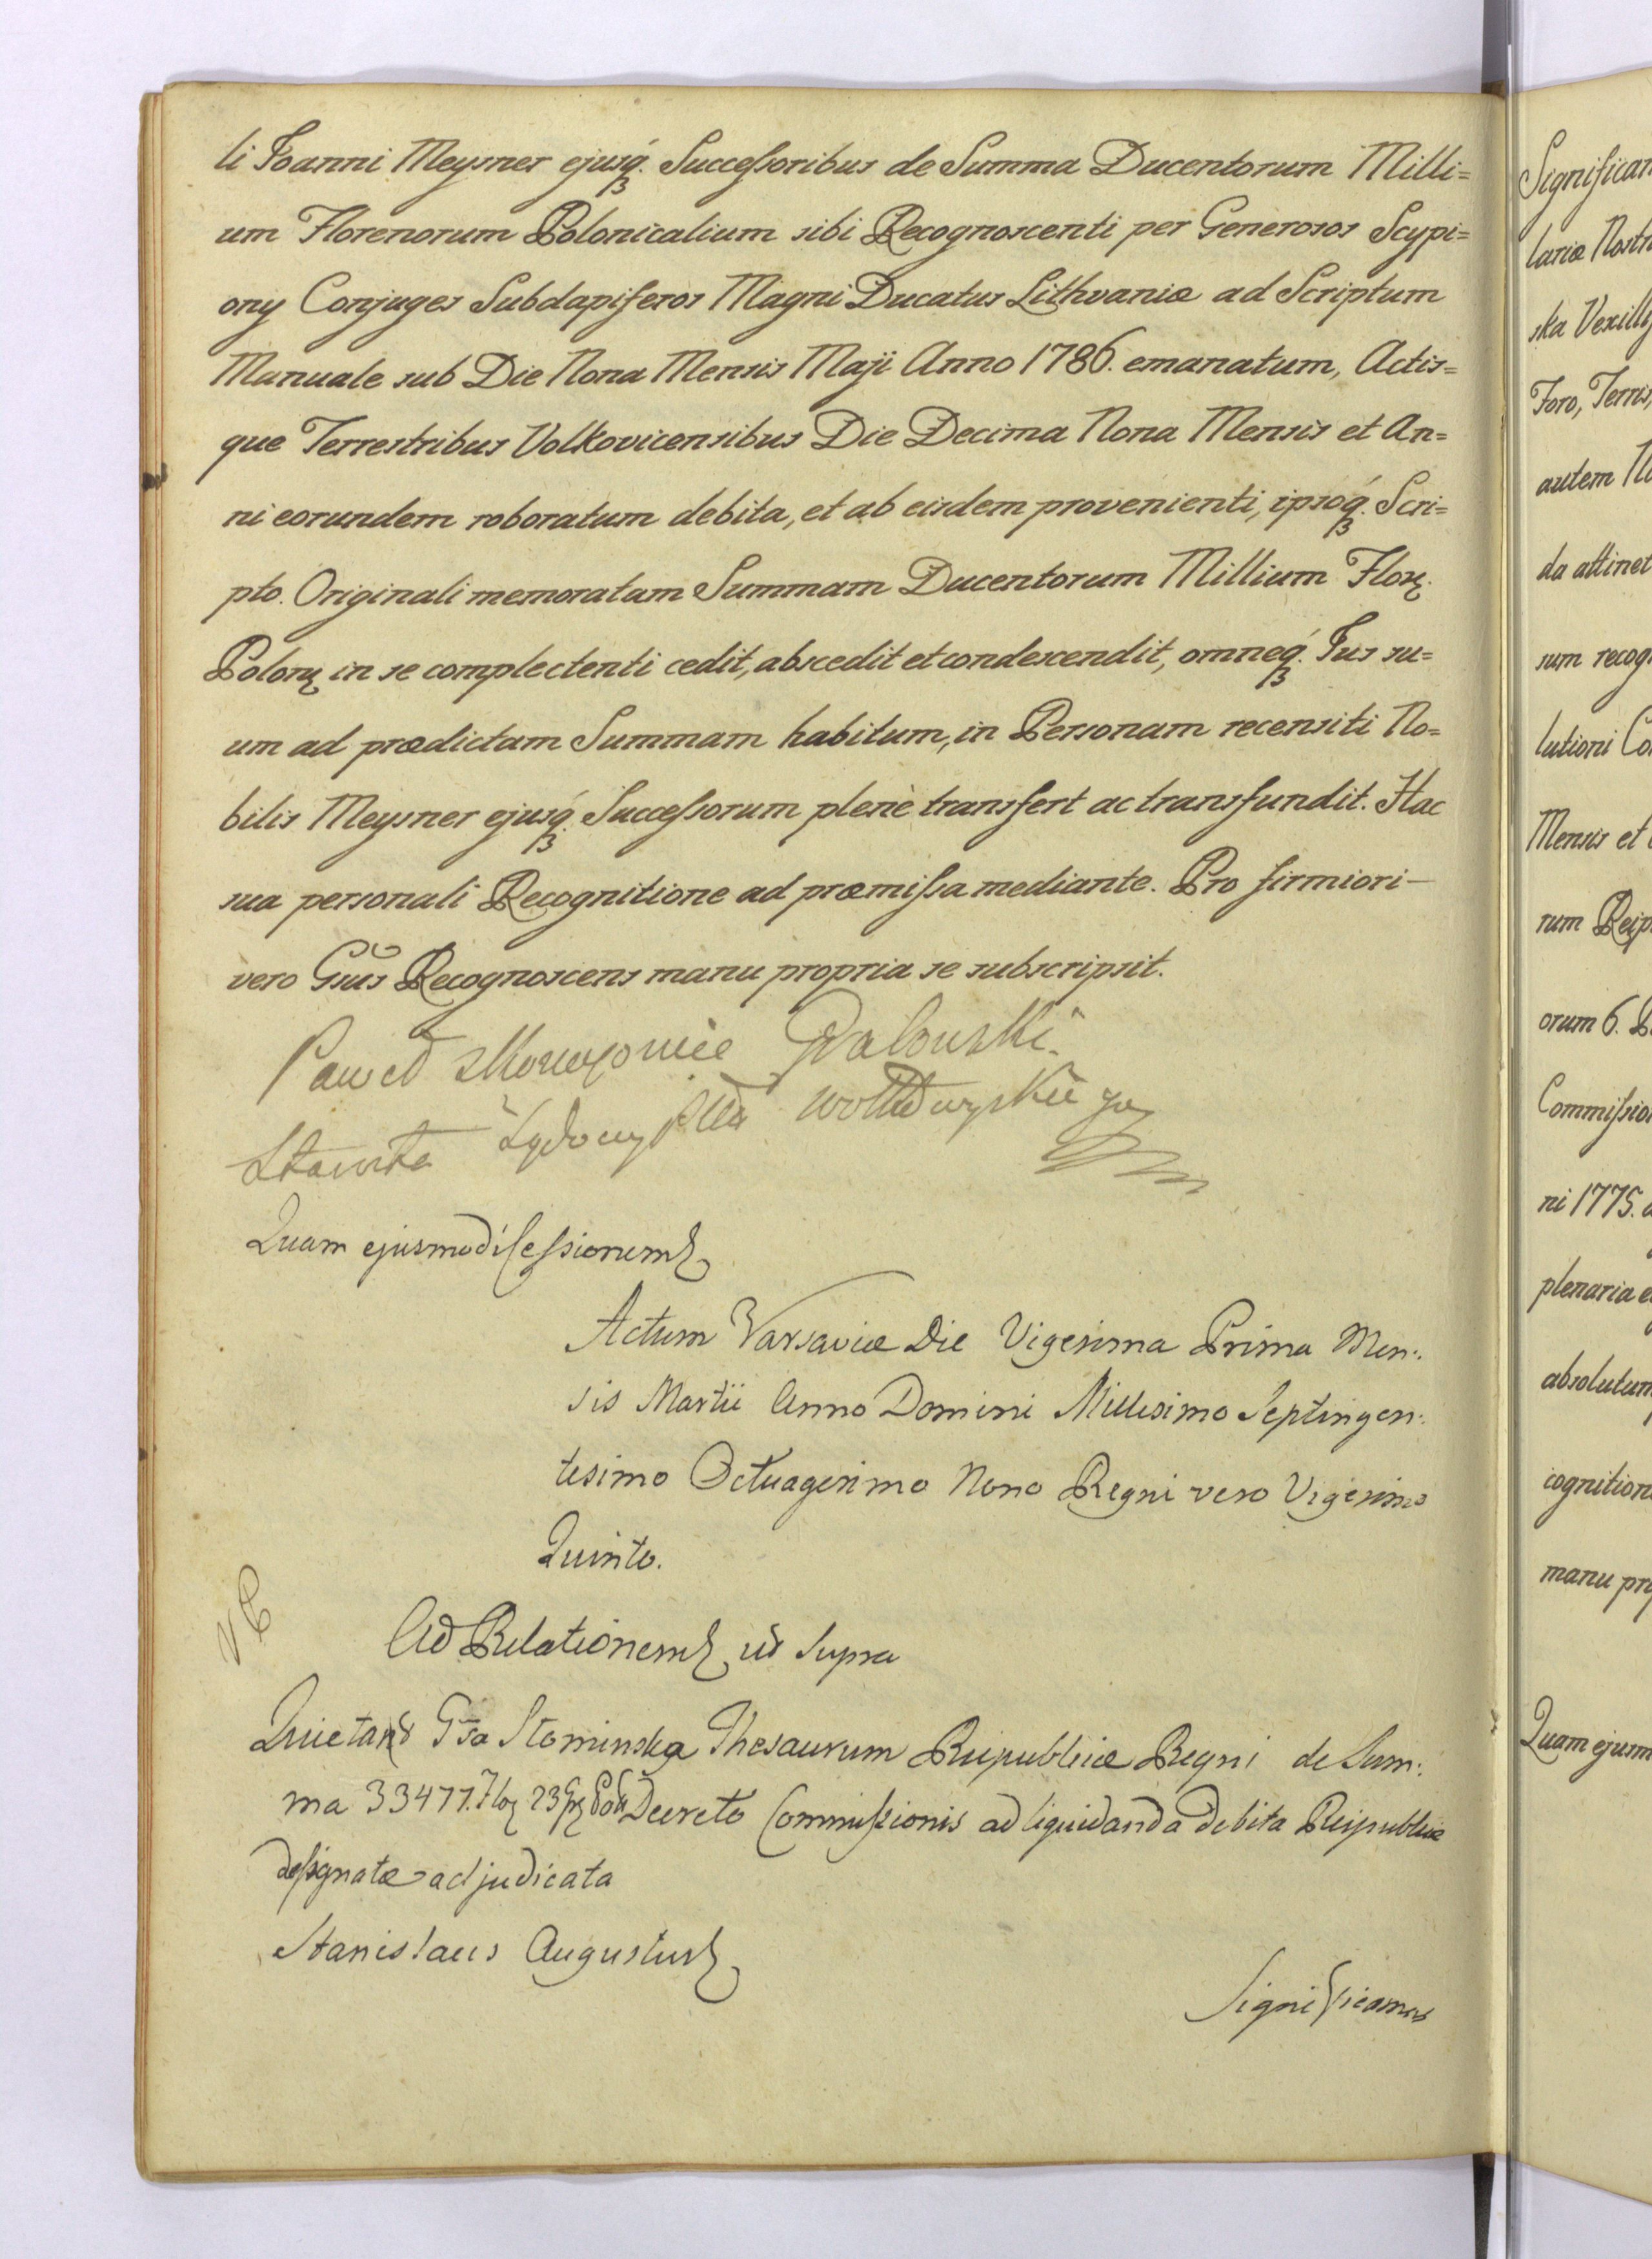 li Joanni Meysner ejusq́ꝫ. Successoribus de Summa Ducentorum Milli=
um Florenorum Polonicalium sibi Recognoscenti per Generosos Scypi=
ony Conjuges Subdapiferos Magni Ducatus Lithvaniæ ad Scriptum
Manuale sub Die Nona Mensis Maji Anno 1786. emanatum, Actis=
que Terrestribus Volkovicensibus Die Decima Nona Mensis et An=
ni eorundem roboratum debita, et ab eisdem provenienti, ipsoq́ꝫ. Scri=
pto. Originali memoratam Summam Ducentorum Millium Flor.
Polor in se complectenti cedit, abscedit et condescendit, omneq́ꝫ. Jus su=
um ad prædictam Summam habitum, in Personam recensiti No=
bilis Meysner ejusq́ꝫ. Successorum plenè transfert ac transfundit. Hac
sua personali Recognitione ad præmissa mediante. Pro firmiori
vero Gsus Recognoscens manu propria se subscripsit.
Paweł
Starosta
Quam ejusmodi Cessionem
Actum Varsaviæ Die Vigesima Prima Men:
sis Martii Anno Domini Millesimo Septingen:
tesimo Octuagesimo Nono Regni vero Vigesimo
Quinto.
Ad Relationem ut Supra
Quietat Gsa Stominska Thesaurum Reipublicæ Regni de Sum:
ma 33477. Flor 23 Gr Pol Decreto Commissionis ad liquidanda debita Reipublicæ
designatæ adjudicata
Stanislaus Augustus
Significamus
Significam
lariæ Nostr
ska Vexilli
Foro, Terris,
autem
da attinet
sum recog
lutioni Co
Mensis et
rum Reip
orum 6.
Commissio
ni 1775.
plenaria e
absolutum
cognition
manu pro
Quam ejusm